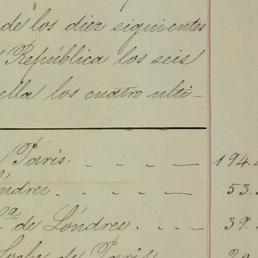 de los diez siguientes
República los seis
ella los cuatro ulti-
Paris. 194.
ndres. 53.
de Lóndres. 39.
de Paris